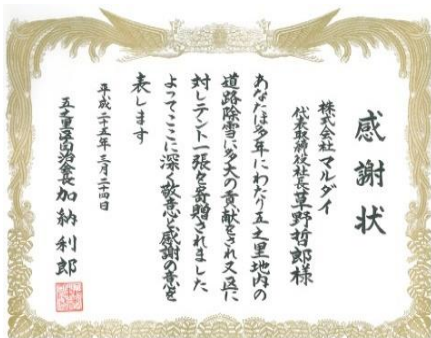 感謝状
株式会社 マルダイ
代表取締役社長 草野哲郎様
あなたは多年にわたり五之里地内の
道路除雪に多大の貢献をされ又区に
対しテント一張を寄贈されました
よってここに深く敬意と感謝の意を
表します
平成二十五年三月二十四日
五之里区自治会長 加納利郎